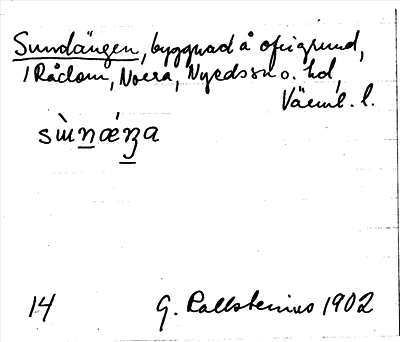 Sundängen, byggnad å ofrigrund,
1 Rådom, Norra, Nyeds sn o. hd,
Värml. l.
sɯ̀n̲ǽŋ̲a
14 G. Kallstenius 1902